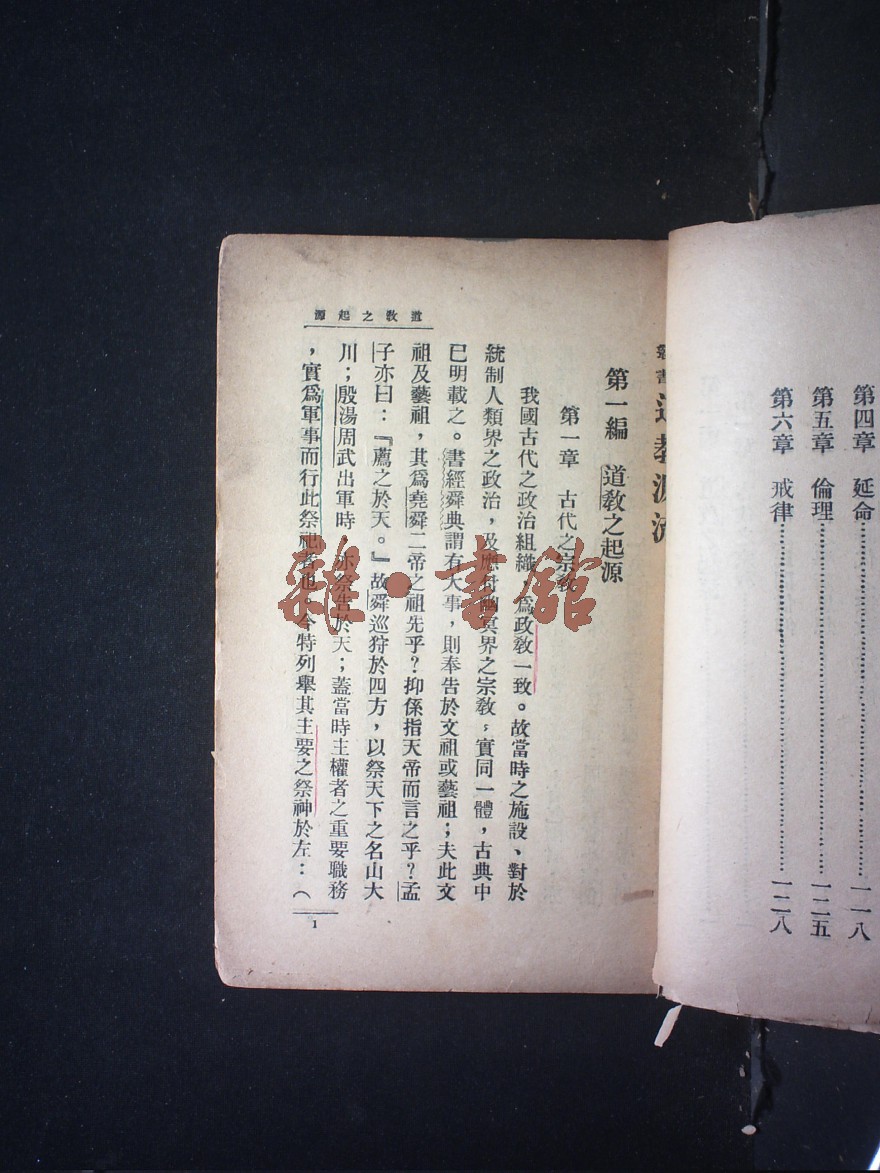 第四章 延命……一一八
第五章 倫理……一二五
第六章 戒律……一二八
叢書 道教源流
第一編 道教之起源
第一章 古代之宗教
我國古代之政治組織,爲政教一致。故當時之施設、對於
統制人類界之政治,及應付幽冥界之宗教,實同一體,古典中
已明載之。書經舜典謂有大事,則奉告於文祖或藝祖;夫此文
祖及藝祖,其爲堯舜二帝之祖先乎?抑係指天帝而言之乎?孟
子亦曰:『薦之於天。』故舜巡狩於四方,以祭天下之名山大
川;殷湯周武出軍時,亦祭告於天;蓋當時主權者之重要職務
,實爲軍事而行此祭祀者也。今特列舉其主要之祭神於左:(
道教之起源
1
雜·書館